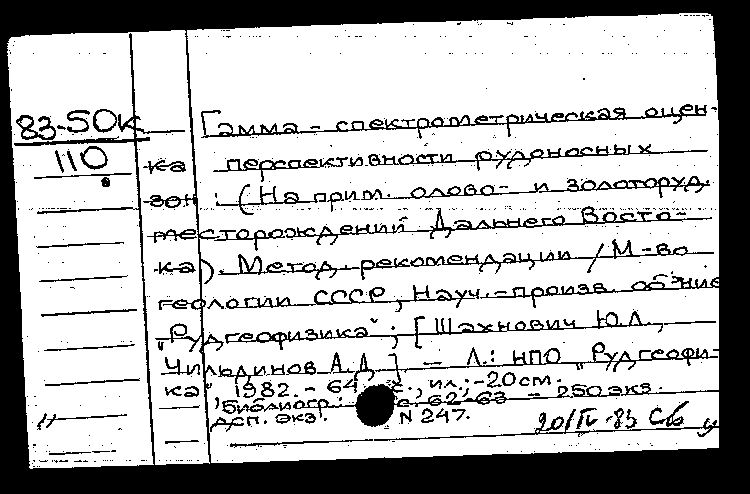 83-50К
110
Гамма-спектрометрическая оцен-
ка перспективности рудоносных
зон : (На прим. олово- и золоторуд.
месторождений Дальнего Восто-
ка). Метод. рекомендации / М-во
геологии СССР, Науч.-произв. об-ние
"Рудгеофизика" ; [Шахнович Ю.Л.,
Чильдинов А.Д.] — Л.: НПО "Рудгеофи-
ка", 1982. - 64 с., ил.; - 20 см.
Библиогр.: с. 62-63 - 250 экз.
Деп. экз. N 247.
20/IV-83